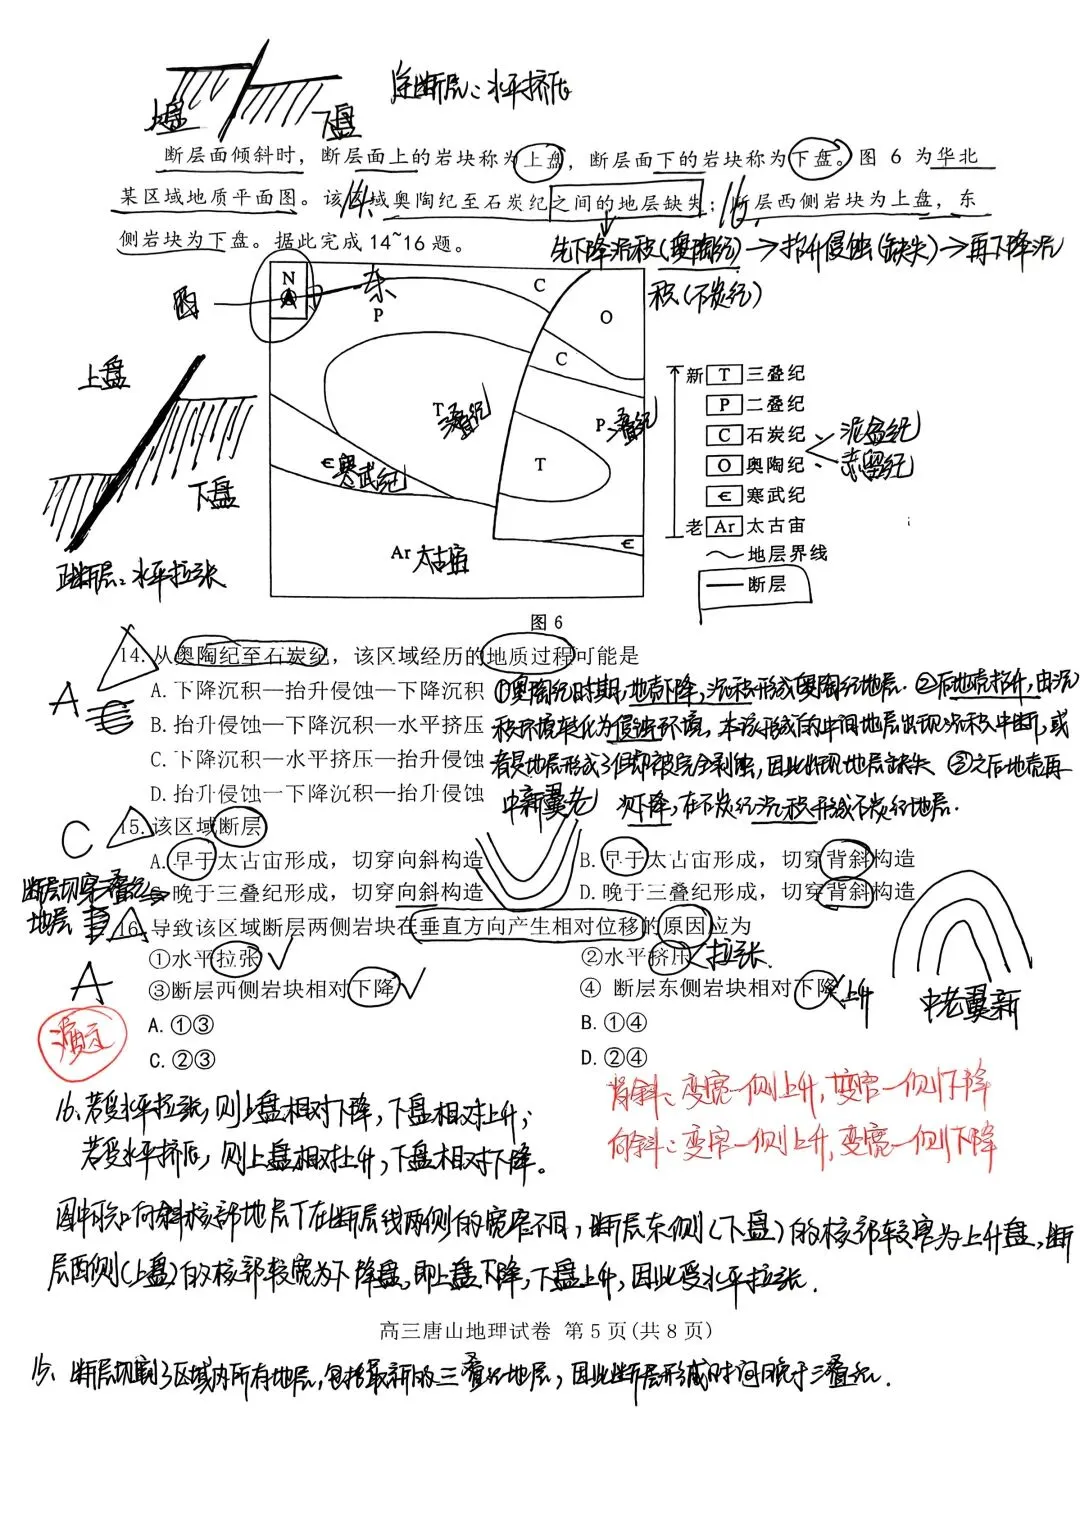 逆断层：水平挤压
上盘
下盘
断层面倾斜时，断层面上的岩块称为上盘，断层面下的岩块称为下盘。图 6 为华北
某区域地质平面图。该区域奥陶纪至石炭纪之间的地层缺失；断层西侧岩块为上盘，东
14.
16.
侧岩块为下盘。据此完成14~16 题。
先下降沉积(奥陶纪)→抬升侵蚀(缺失)→再下降沉
积(石炭纪)
N
西
东
P
C
O
C
T
三叠纪
P
二叠纪
T
Є
寒武纪
Є
Ar
太古宙
上盘
下盘
正断层：水平拉张
新 T 三叠纪
P 二叠纪
C 石炭纪
O 奥陶纪
Є 寒武纪
老 Ar 太古宙
地层界线
断层
泥盆纪
志留纪
图 6
14.从奥陶纪至石炭纪，该区域经历的地质过程可能是
A
A.下降沉积—抬升侵蚀—下降沉积
B.抬升侵蚀—下降沉积—水平挤压
C.下降沉积—水平挤压—抬升侵蚀
D.抬升侵蚀—下降沉积—抬升侵蚀
①奥陶纪时期，地壳下降，沉积形成奥陶纪地层.②后地壳抬升，由沉
积环境转化为侵蚀环境，本该形成的中间地层出现沉积中断，或
者是地层形成了但却被完全剥蚀，因此出现地层缺失 ③之后地壳再
次下降，在石炭纪沉积形成石炭纪地层.
中新翼老
C
15.该区域断层
A.早于太古宙形成，切穿向斜构造
B.早于太古宙形成，切穿背斜构造
C.晚于三叠纪形成，切穿向斜构造
D.晚于三叠纪形成，切穿背斜构造
断层切穿三叠纪
地层
16.导致该区域断层两侧岩块在垂直方向产生相对位移的原因应为
A
①水平拉张 ✓
②水平挤压 拉张.
③断层西侧岩块相对下降 ✓
④ 断层东侧岩块相对下降 上升
中老翼新
A.①③
B.①④
C.②③
D.②④
背斜：变宽一侧上升，变窄一侧下降
向斜：变窄一侧上升，变宽一侧下降
16.若受水平拉张，则上盘相对下降，下盘相对上升；
若受水平挤压，则上盘相对上升，下盘相对下降。
图中形口向斜核部地层T在断层线两侧的宽窄不同，断层东侧(下盘)的核部较窄为上升盘，断
层西侧(上盘)的核部较宽为下降盘，即上盘下降，下盘上升，因此受水平拉张.
高三唐山地理试卷 第 5 页(共 8 页)
15. 断层切割了区域内所有地层，包括最新的三叠纪地层，因此断层形成时间晚于三叠纪.